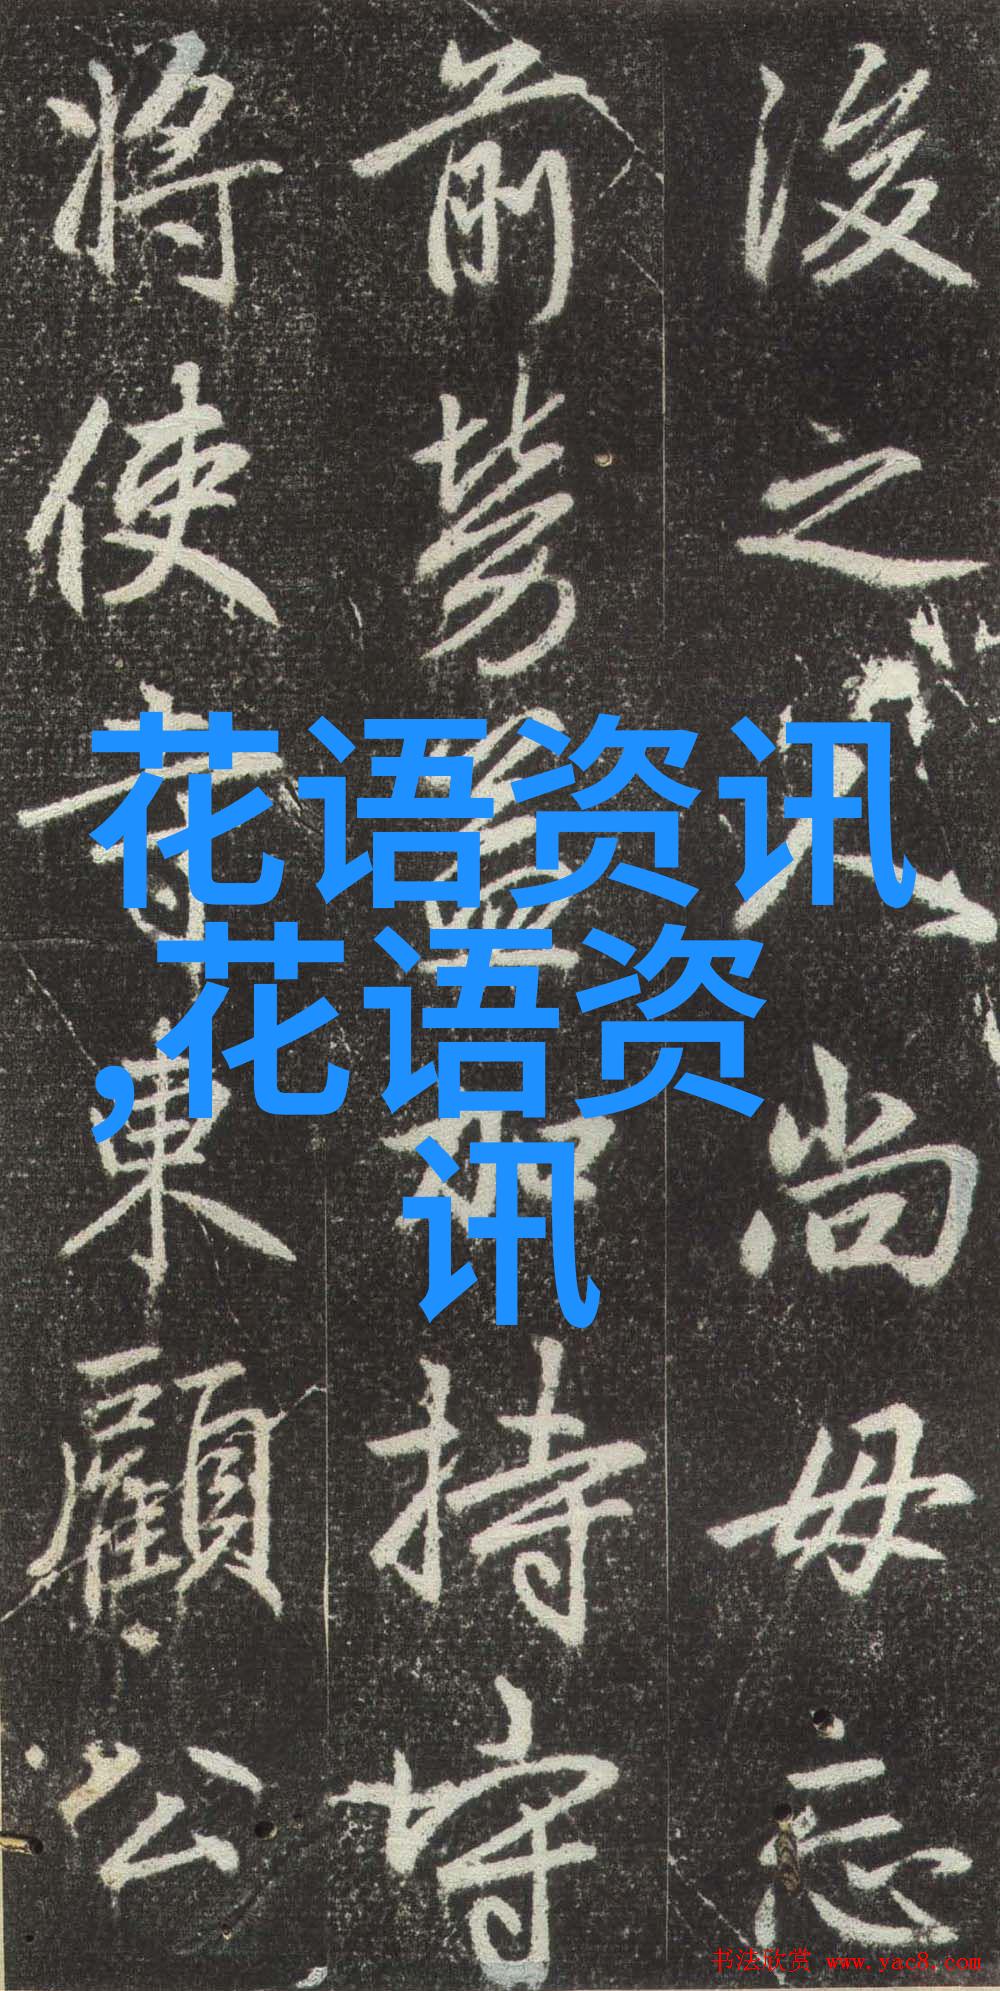 後之人尚毋忘
前勞益加持守
將使寺東顧公
花语资讯
,花语资
讯
书法欣赏 www.yac8.com